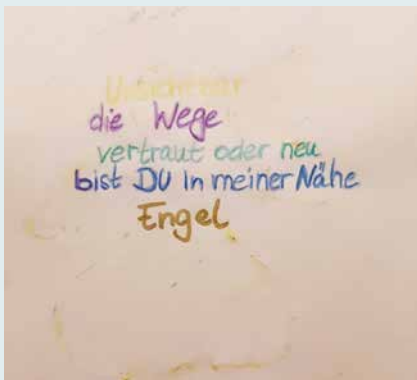 Unsichtbar
die Wege
vertraut oder neu
bist DU in meiner Nähe
Engel